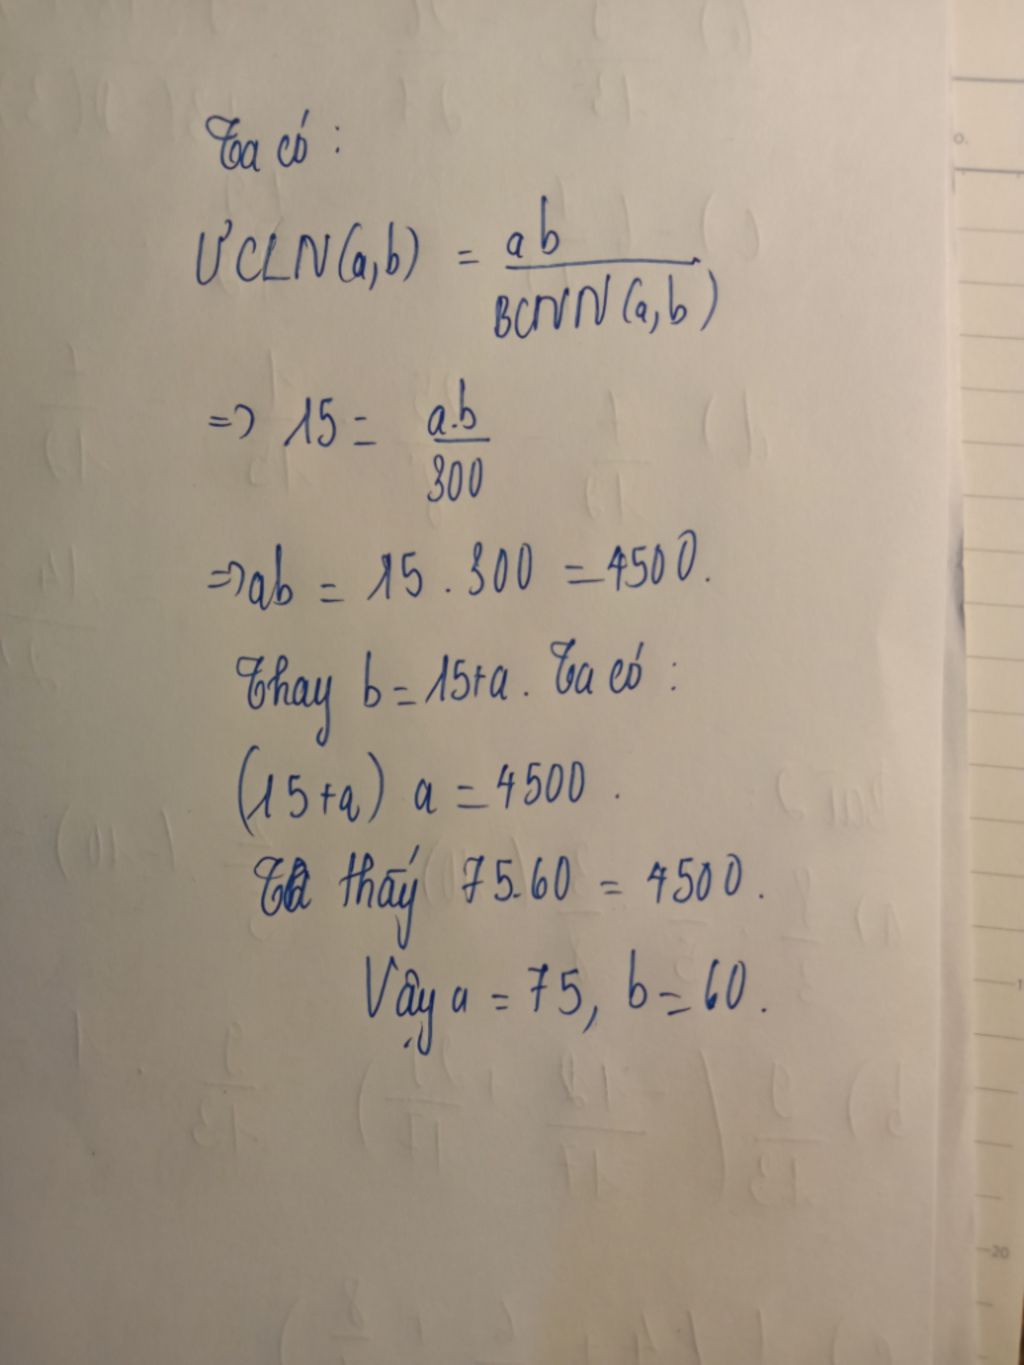 Ta có :
ƯCLN(a,b) = ab / BCNN(a,b)
=> 15 = a.b / 300
=> ab = 15 . 300 = 4500.
Thay b = 15+a. Ta có :
(15+a) a = 4500 .
Ta thấy 75.60 = 4500.
Vậy a = 75, b = 60.